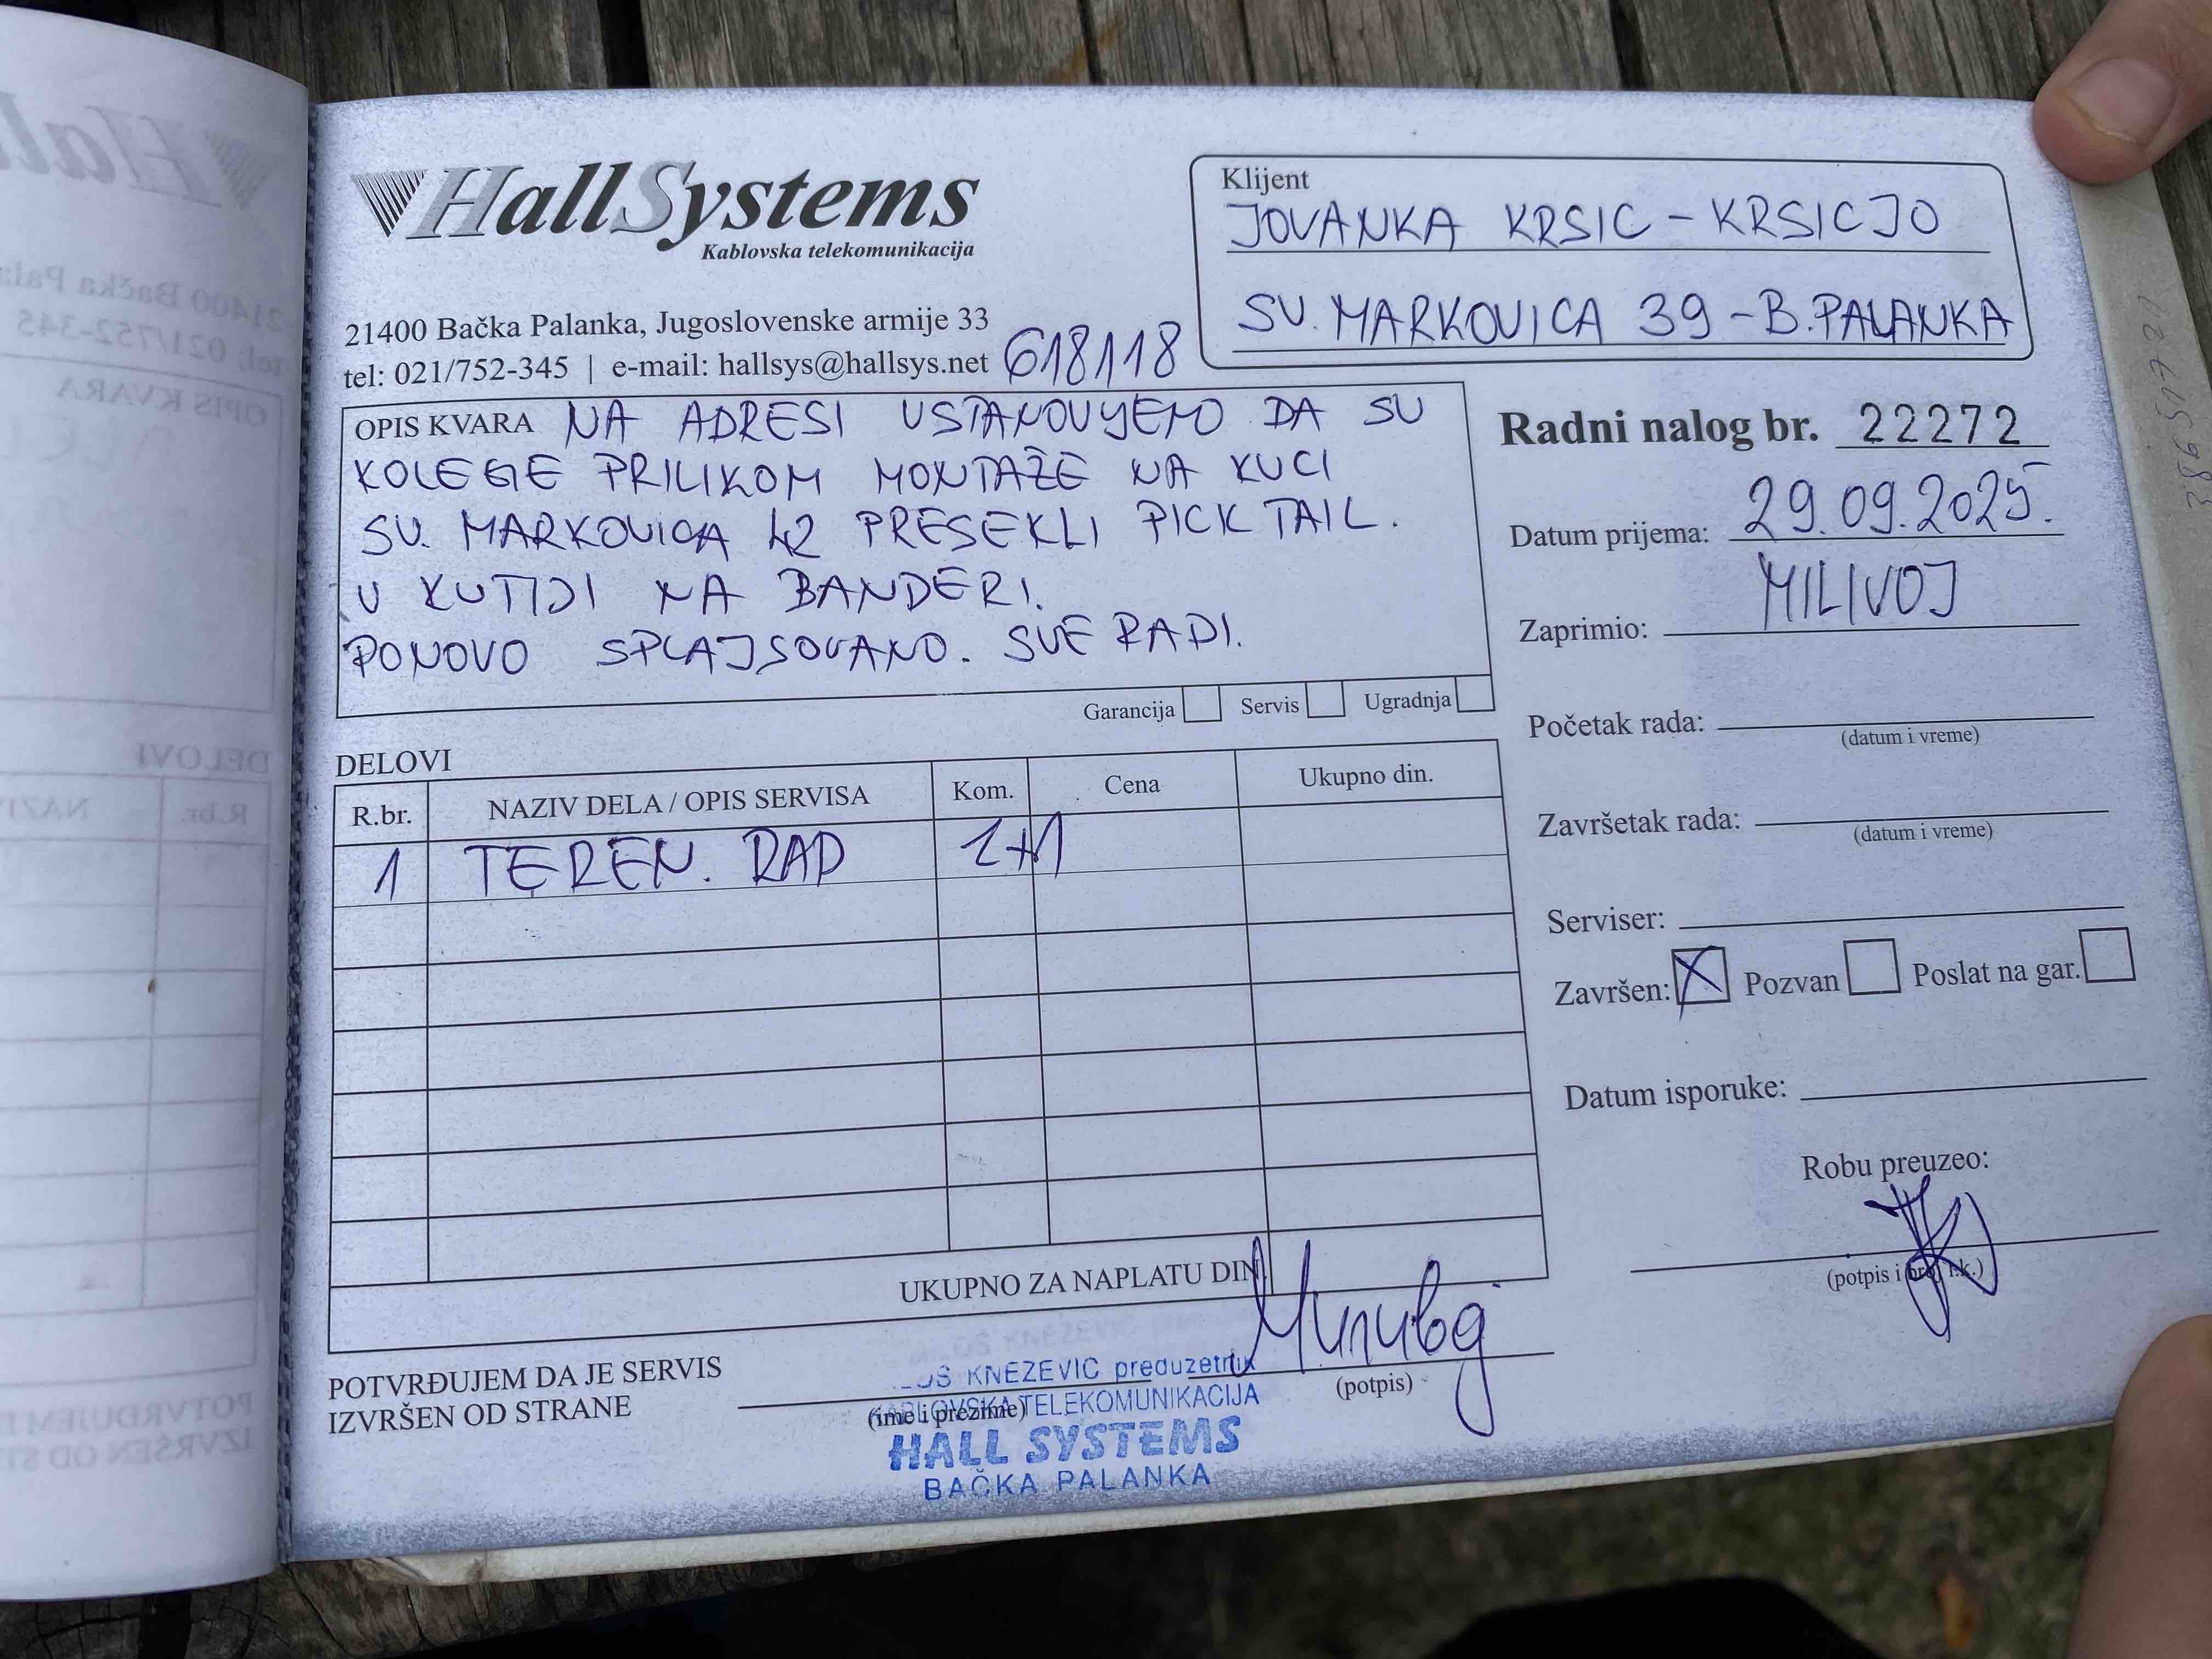 HallSystems
Kablovska telekomunikacija
21400 Bačka Palanka, Jugoslovenske armije 33
tel: 021/752-345 | e-mail: hallsys@hallsys.net
618118
Klijent
JOVANKA KRSIC - KRSICJO
SV. MARKOVICA 39 - B. PALANKA
OPIS KVARA NA ADRESI USTANOVLJENO DA SU
KOLEGE PRILIKOM MONTAŽE NA KUCI
SV. MARKOVICA 42 PRESEKLI PICK TAIL.
U KUTIJI NA BANDERI.
PONOVO SPLAJSOVANO. SVE RADI.
Garancija Servis Ugradnja
Radni nalog br. 22272
Datum prijema: 29.09.2025.
Zaprimio: MILIVOJ
Početak rada:
(datum i vreme)
Završetak rada:
(datum i vreme)
Serviser:
Završen: X Pozvan Poslat na gar.
Datum isporuke:
Robu preuzeo:
(potpis i br. l.k.)
DELOVI
R.br. NAZIV DELA / OPIS SERVISA Kom. Cena Ukupno din.
1 TEREN. RAD 1+1
UKUPNO ZA NAPLATU DIN.
POTVRĐUJEM DA JE SERVIS
IZVRŠEN OD STRANE
(ime i prezime)
Миливој
(potpis)
KNEZEVIC preduzetnik
KABLOVSKA TELEKOMUNIKACIJA
HALL SYSTEMS
BAČKA PALANKA